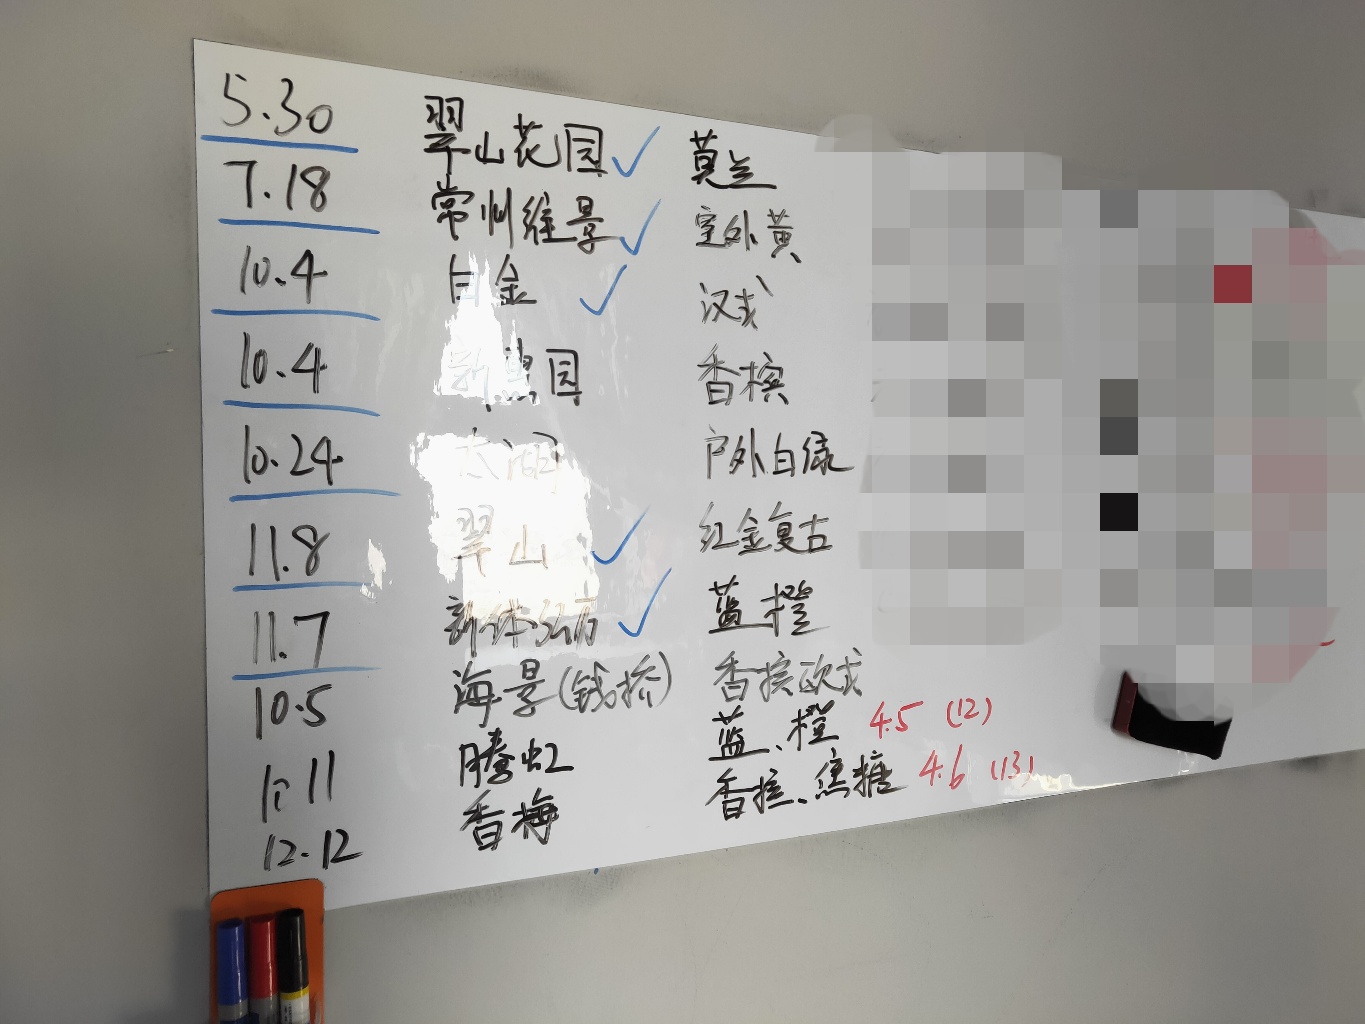 5.30 翠山花园 ✓ 莫兰
7.18 常州维景 ✓ 室外黄
10.4 白金 ✓ 汉式
10.4 园 香槟
10.24 太湖 户外白绿
11.8 翠山 ✓ 红金复古
11.7 新体 ✓ 蓝橙
10.5 海景(钱桥) 香槟欧式
1.11 腾虹 蓝、橙 4.5 (12)
12.12 香梅 香槟、焦糖 4.6 (13)